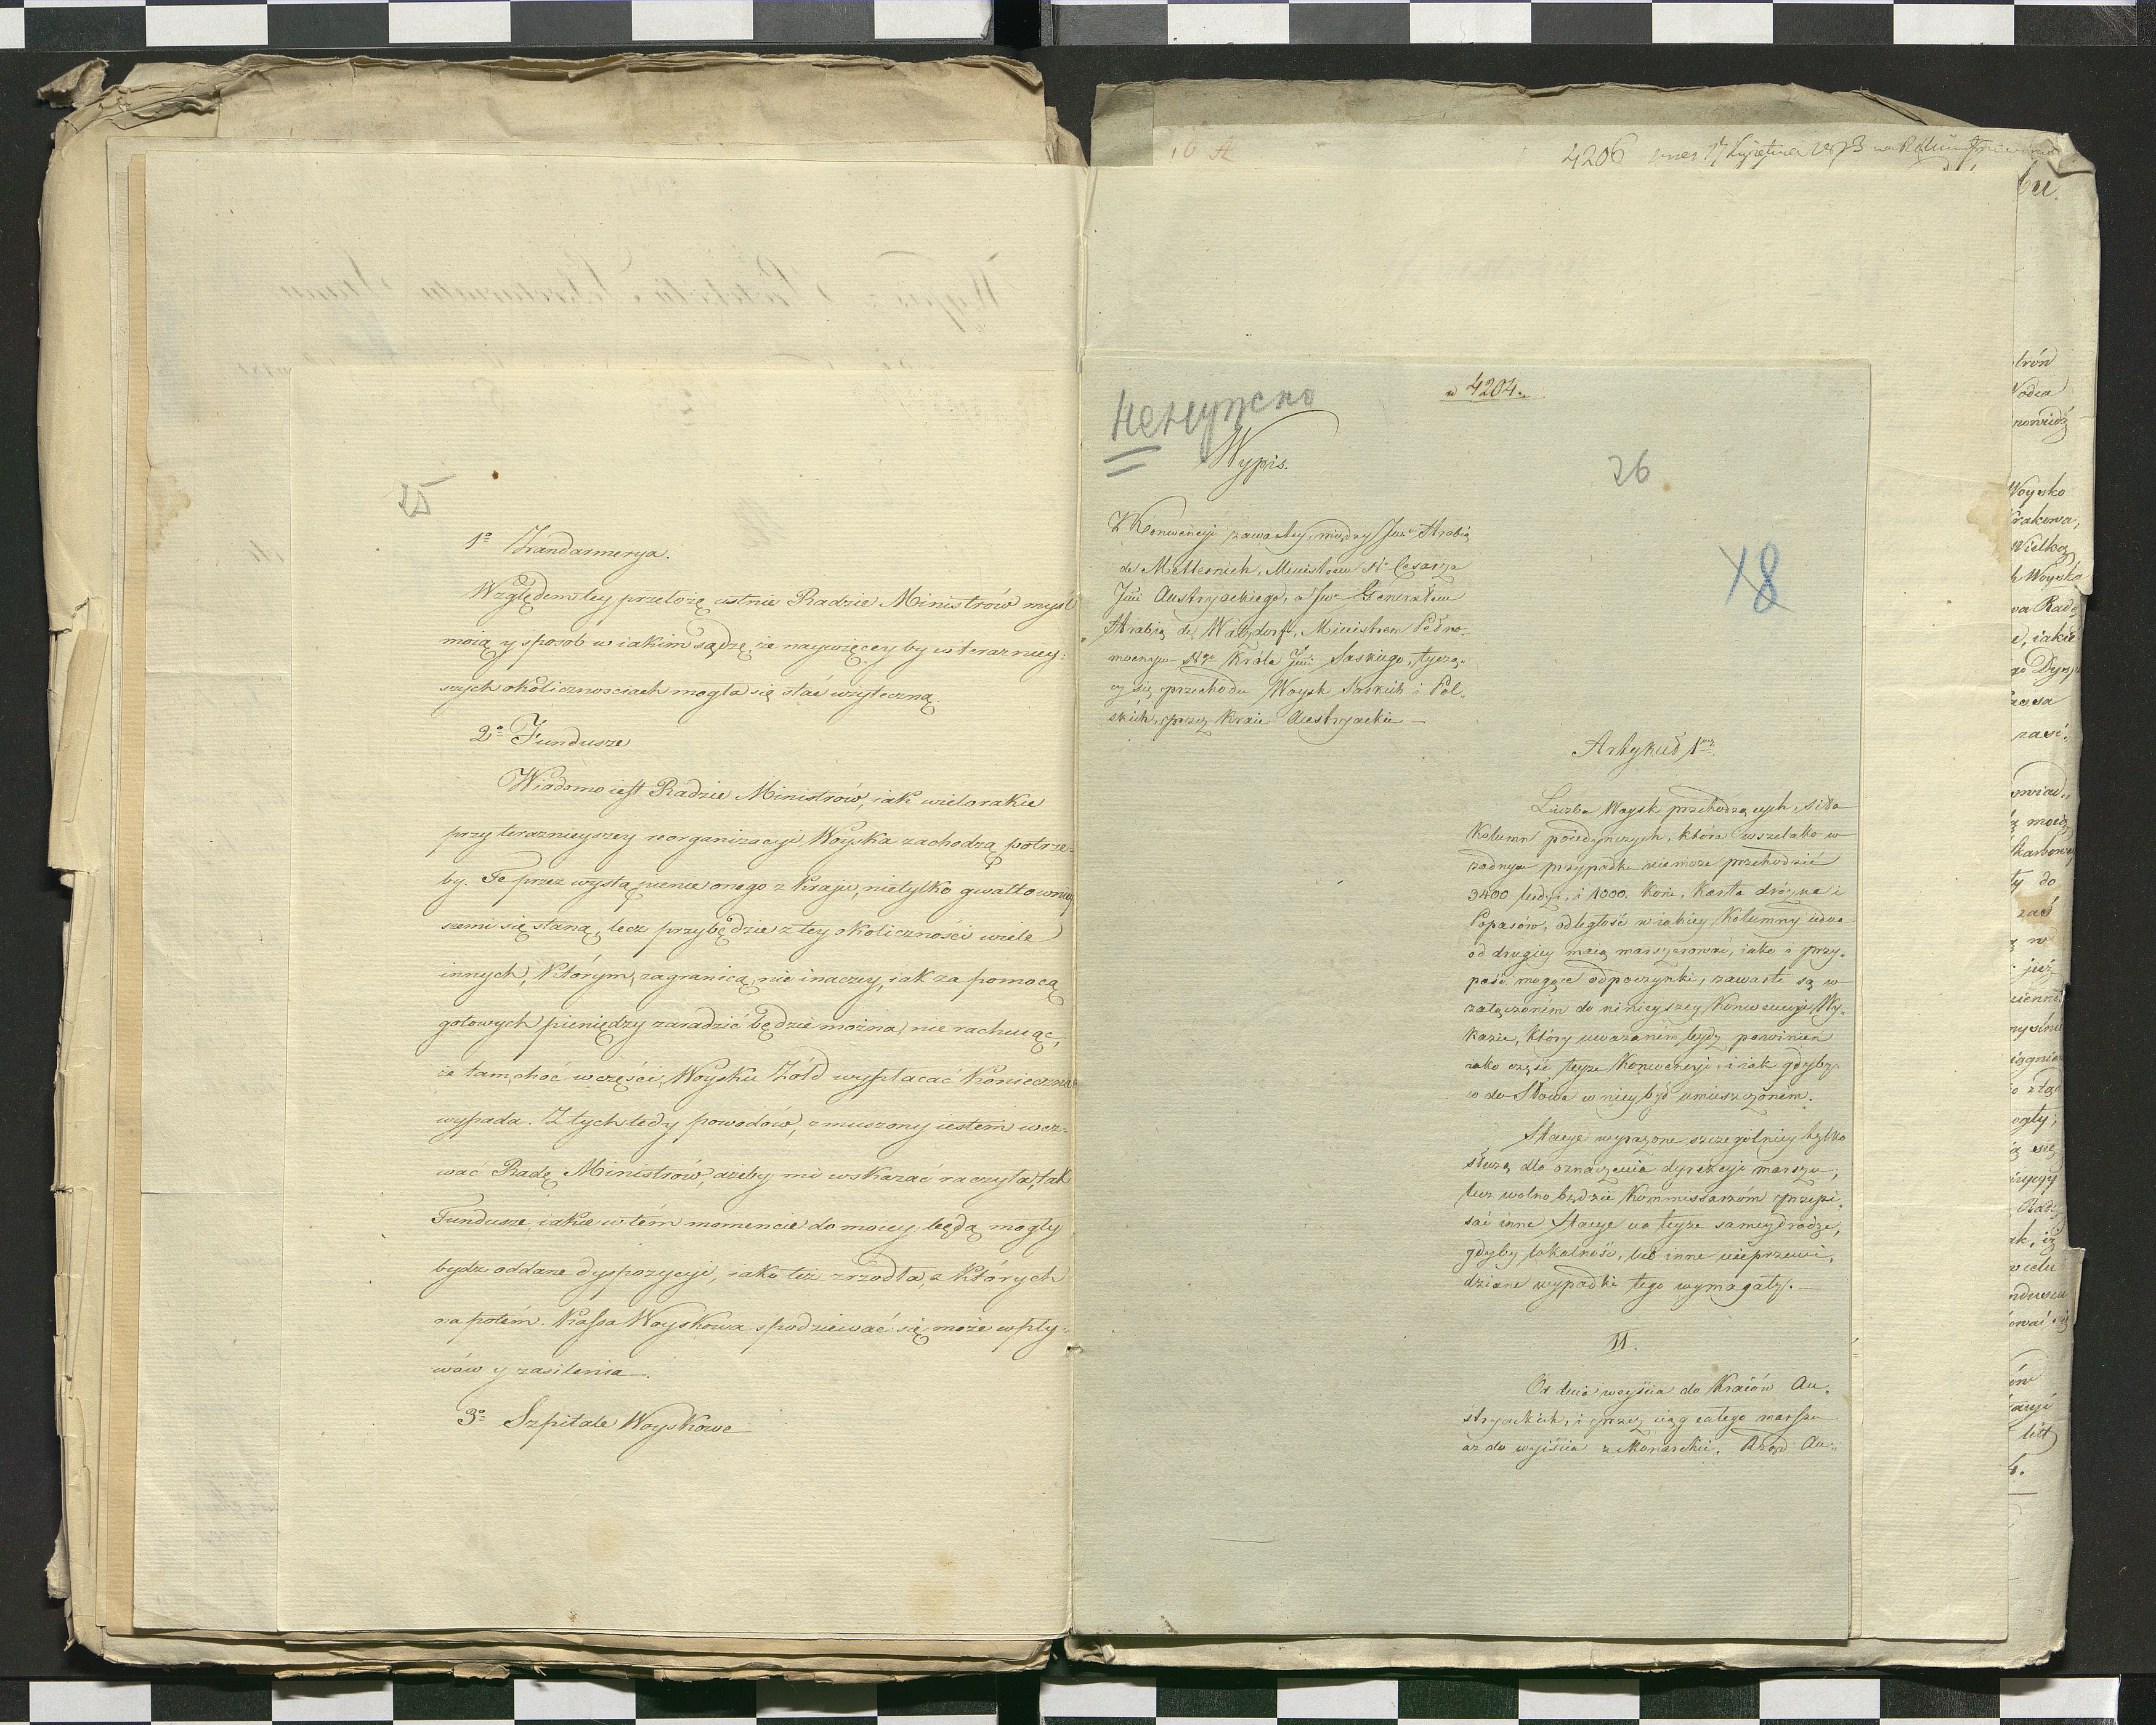 25
1º Żandarmerya.
Względem tey przełożę ustnie Radzie Ministrów myśl
moią y sposób w iakim sądzę, że naywięcey by w terazniey=
szych okolicznosciach mogła się stać użyteczną.
2º Fundusze
Wiadomo iest Radzie Ministrów, iak wielorakie
przy teraznieyszey reorganizacyi Woyska zachodzą potrze=
by. Te przez wystąpienie onego z Kraju, nietylko gwałtowniey
szemi się staną, lecz przybędzie z tey okoliczności wiele
innych, którym, zagranicą, nie inaczey, iak za pomocą
gotowych pieniędzy zaradzić będzie można, nie rachuiąc,
że tam, choć w części, Woysku Żołd wypłacać koniecznie
wypada. Z tych tedy powodów, zmuszony iestem wez=
wać Radę Ministrów, ażeby mi wskazać raczyła, tak
Fundusze, iakie w tém momencie do mocy będą mogły
bydz oddane dyspozycyi, iako też zrzódła, z których
na potém Kassa Woyskowa spodziewać się może wpły=
wów y zasilenia.
3º Szpitale Woyskowe
4206
4204.
ненужно
26
Wypis.
18
Z Konwencyi zawartey między Jw. Hrabią
de Metternich, Ministrem N. Cesarza
Jmci Austryackiego, a Jw. Generałem
Hrabią de Watzdorff, Ministrem Pełno-
mocnym Ngo Króla Jmci Saskiego, tyczą-
cy się przechodu Woysk Saskich i Pol-
skich, przez Kraie Austryackie —
Artykuł 1wszy
Liczba Woysk przechodzących, siła
Kolumn poiedynczych, która wszelako w
żadnym przypadku nie może przechodzić
3400 ludzi, i 1000. Koni, Karta dróżna i
Popasów, odległość w iakiey Kolumny iedna
od drugiey maią marszerować, iako i przy-
paść mogące odpoczynki, zawarte są w
załączoném do ninieyszey Konwencyi Wy-
kazie, który uważaném bydź powinien
iako część teyże Konwencyi, i iak gdyby
co do Słowa w niey był umieszczoném.
Stacye wyrażone szczególniey tylko
służą dla oznaczenia dyrekcyi marszu,
lecz wolno będzie Kommissarzóm przepi-
sać inne Stacye na teyże samey drodze,
gdyby lokalność, lub inne nieprzewi-
dziane wypadki tego wymagały. —
II.
Od dnia weyścia do Kraiów Au-
stryackich, i przez ciąg całego marszu
aż do wyiścia z Monarchii, Rząd Au-